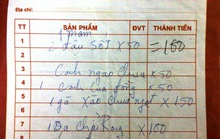 Địa chỉ:
TT SẢN PHẨM ĐVT THÀNH TIỀN
1
2 Đậu Sốt x50 = 150
3 Canh ngao chua x50
4 1 canh Cua đồng x50
5 1 gà xào chua ngọt x150
6
7 1 Ba chỉ Rang x100
8